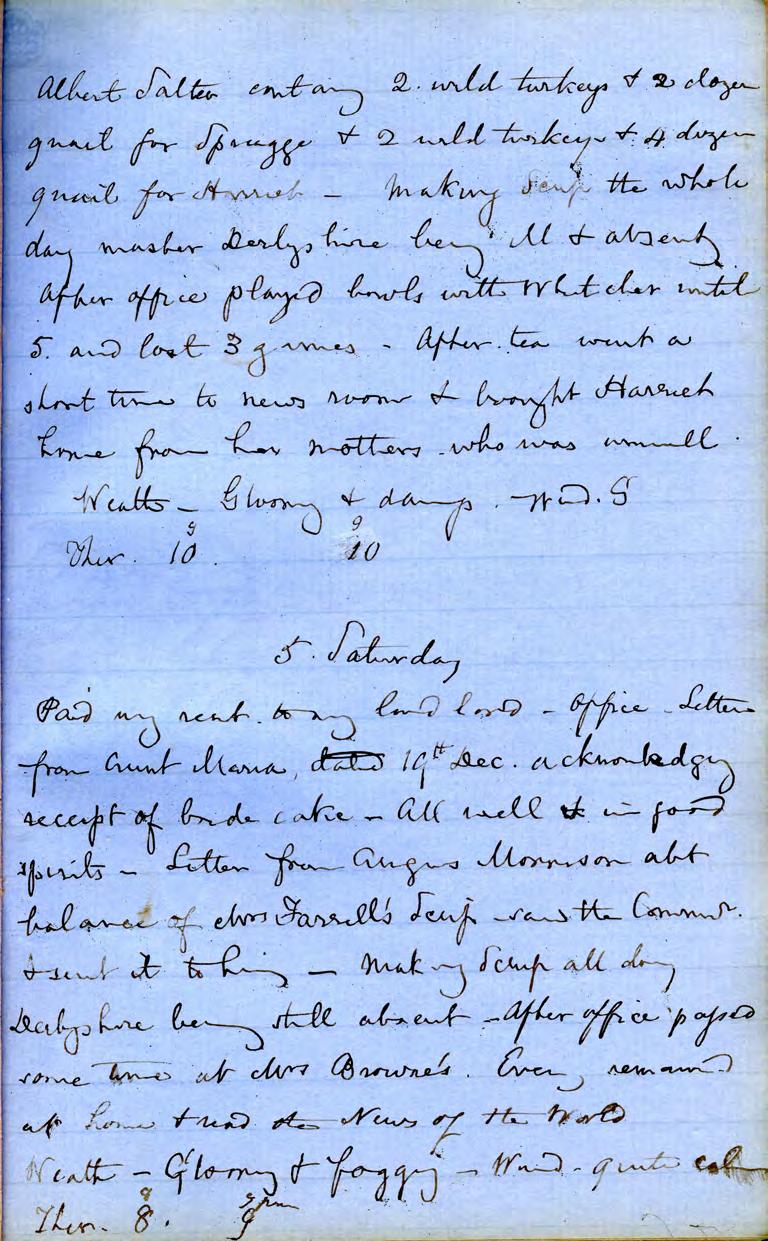 Albert Salter containg 2 wild turkeys & 2 dozen
quail for Spragge & 2 wild turkeys & 4 dozen
quail for Harriet – Making Scrip the whole
day Derbyshire being ill & absent
After office played bowls with Whitcher until
5. and lost 3 games – After tea went a
short time to news room & brought Harriet
home from her mothers who was unwell.
Weathr – Gloomy & damp. – Wind. S
9 9
Ther. 10. 10
5. Saturday
Paid my rent to my land lord – Office – Letter
from Aunt Maria, dated 19th Dec. acknowledgg
receipt of bride cake – All well & in good
spirits – Letter from Angus Morrison abt
balance of Mrs Farrell's Scrip – saw the Commr.
& sent it to him – Making Scrip all day
Derbyshire being still absent – After office passed
some time at Mrs Browne's. Eveng remaind
at home & read the News of the World
Weathr – Gloomy & foggy – Wind – quite calm
9 9 pm
Ther. 8. 9